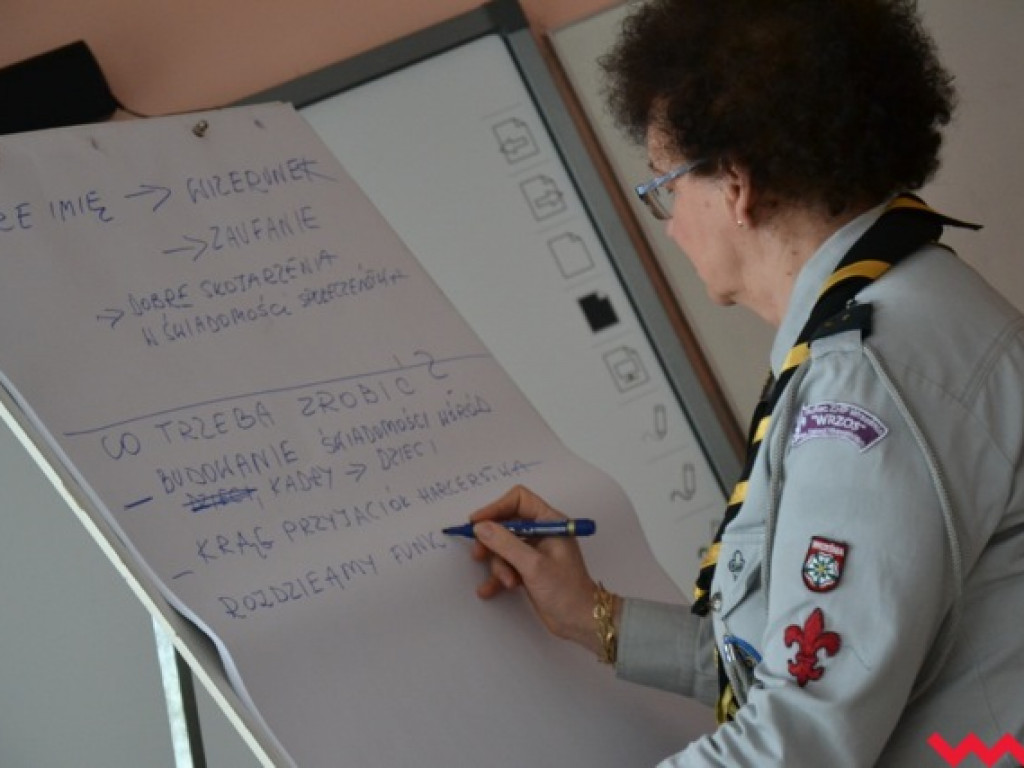 IMIĘ → WIZERUNEK
→ ZAUFANIE
→ DOBRE SKOJARZENIA
W ŚWIADOMOŚCI SPOŁECZEŃSTWA
CO TRZEBA ZROBIĆ?
- BUDOWANIE ŚWIADOMOŚCI WŚRÓD
DZIECI, KADRY → DZIECI
- KRĄG PRZYJACIÓŁ HARCERSTWA
ROZDZIELAMY FUNK
"WRZOS"